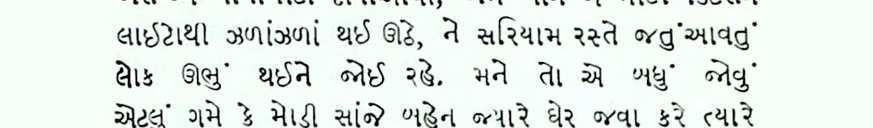 લાઈટોથી ઝળાંઝળાં થઈ ઊઠે, ને સરિયામ રસ્તે જતુંઆવતું
લોક ઊભું થઈને જોઈ રહે. મને તો એ બધું જોવું
એટલું ગમે કે મોડી સાંજે બહેન જ્યારે ઘેર જવા કરે ત્યારે